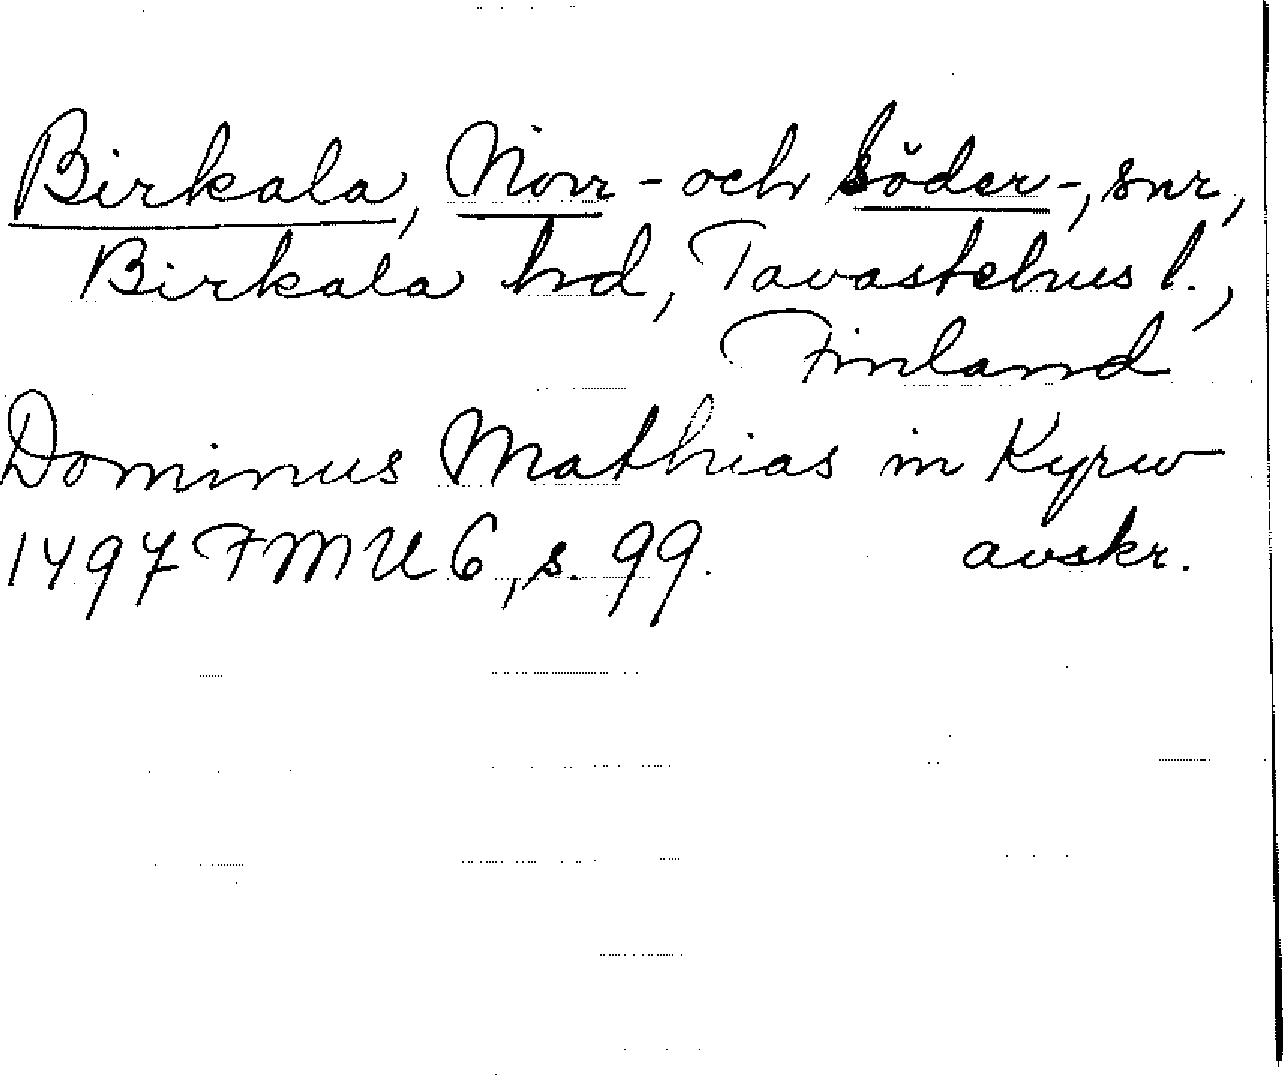 Birkala, Norr- och Söder-, snr,
Birkala hd, Tavastehus l.,
Finland
Dominus Mathias in Kyrw
1497 FMU 6, s. 99. avskr.